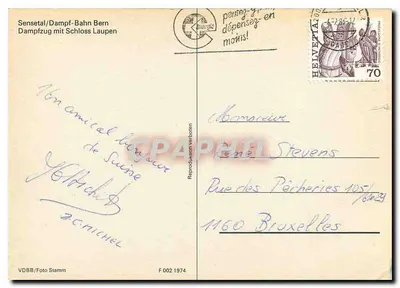 Sensetal/Dampf-Bahn Bern
Dampfzug mit Schloss Laupen
pensez-y!
dépensez-en
moins!
HELVETIA
70
Un amical bonjour
de Suisse
J.C. MICHEL
Monsieur
René Stevens
Rue des Pêcheries 105/
1160 Bruxelles
Reproduktion verboten
VDBB/Foto Stamm
F 002 1974
CPAPHIL